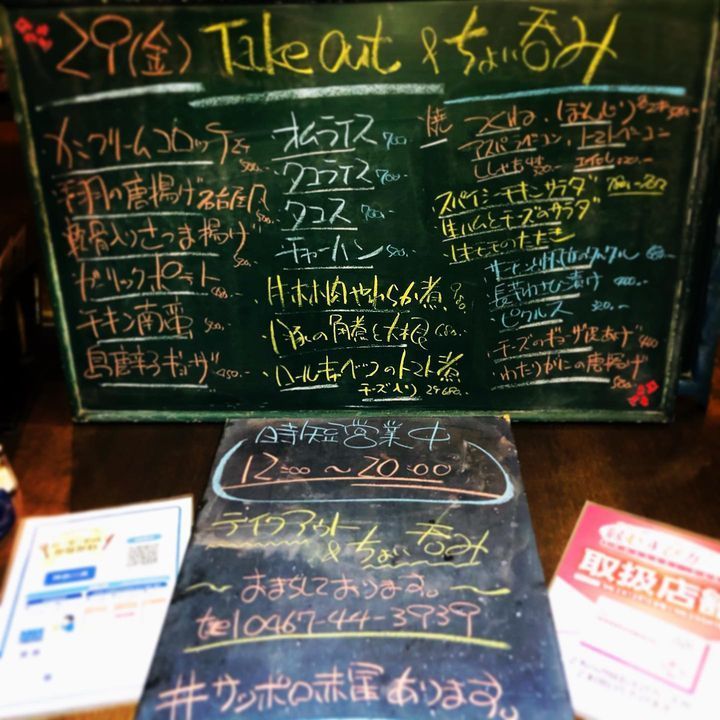 29(金) Take Out & ちょい呑み
カニクリームコロッケ
手羽の唐揚げ名古屋風
軟骨入りさつま揚げ
ガーリックポテト
チキン南蛮 500.-
島唐辛子ギョーザ 450.-
オムライス 700
タコライス 700.-
タコス 700.-
チャーハン 500.-
牛ホホ肉やわらか煮
豚の角煮と大根 680.-
ロールキャベツのトマト煮
チーズ入り 2ケ680.-
焼 つくね・ぼんじり
アスパラベーコン、トマトベーコン
ししゃも
スパイシーチキンサラダ
生ハムとチーズのサラダ
長芋わさび漬け 400.-
ピクルス 300.-
チーズのギョーザ皮あげ 400
わたりがにの唐揚げ 500.-
時短営業中
12:00 ~ 20:00
テイクアウト
& ちょい呑み
~ おまちしております。~
tel 0467-44-3939
#サッポロ赤星あります。
取扱店舗